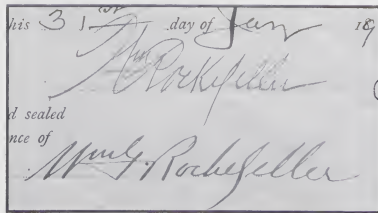 his 31st day of Jan 189
Wm Rockefeller
d sealed
nce of
Wm G. Rockefeller